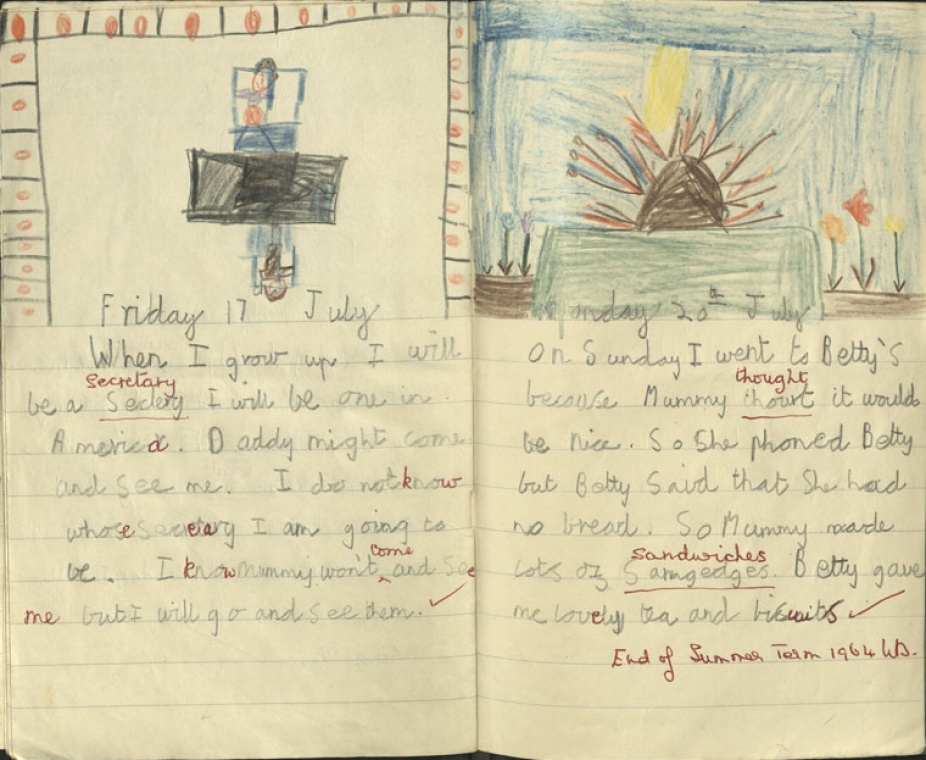 Friday 17 July
When I grow up I will
secretary
be a Sectery I will be one in
America. Daddy might come
and See me. I do not know
whose secretary I am going to
be. I know Mummy won't come and See
me but I will go and see them.
onday 20th July
On Sunday I went to Betty's
thought
because Mummy thourt it would
be nice. So She phoned Betty
but Betty Said that She had
no bread. So Mummy made
sandwiches
Lots of Samgedges. Betty gave
me lovely tea and biscuits
End of Summer Term 1964